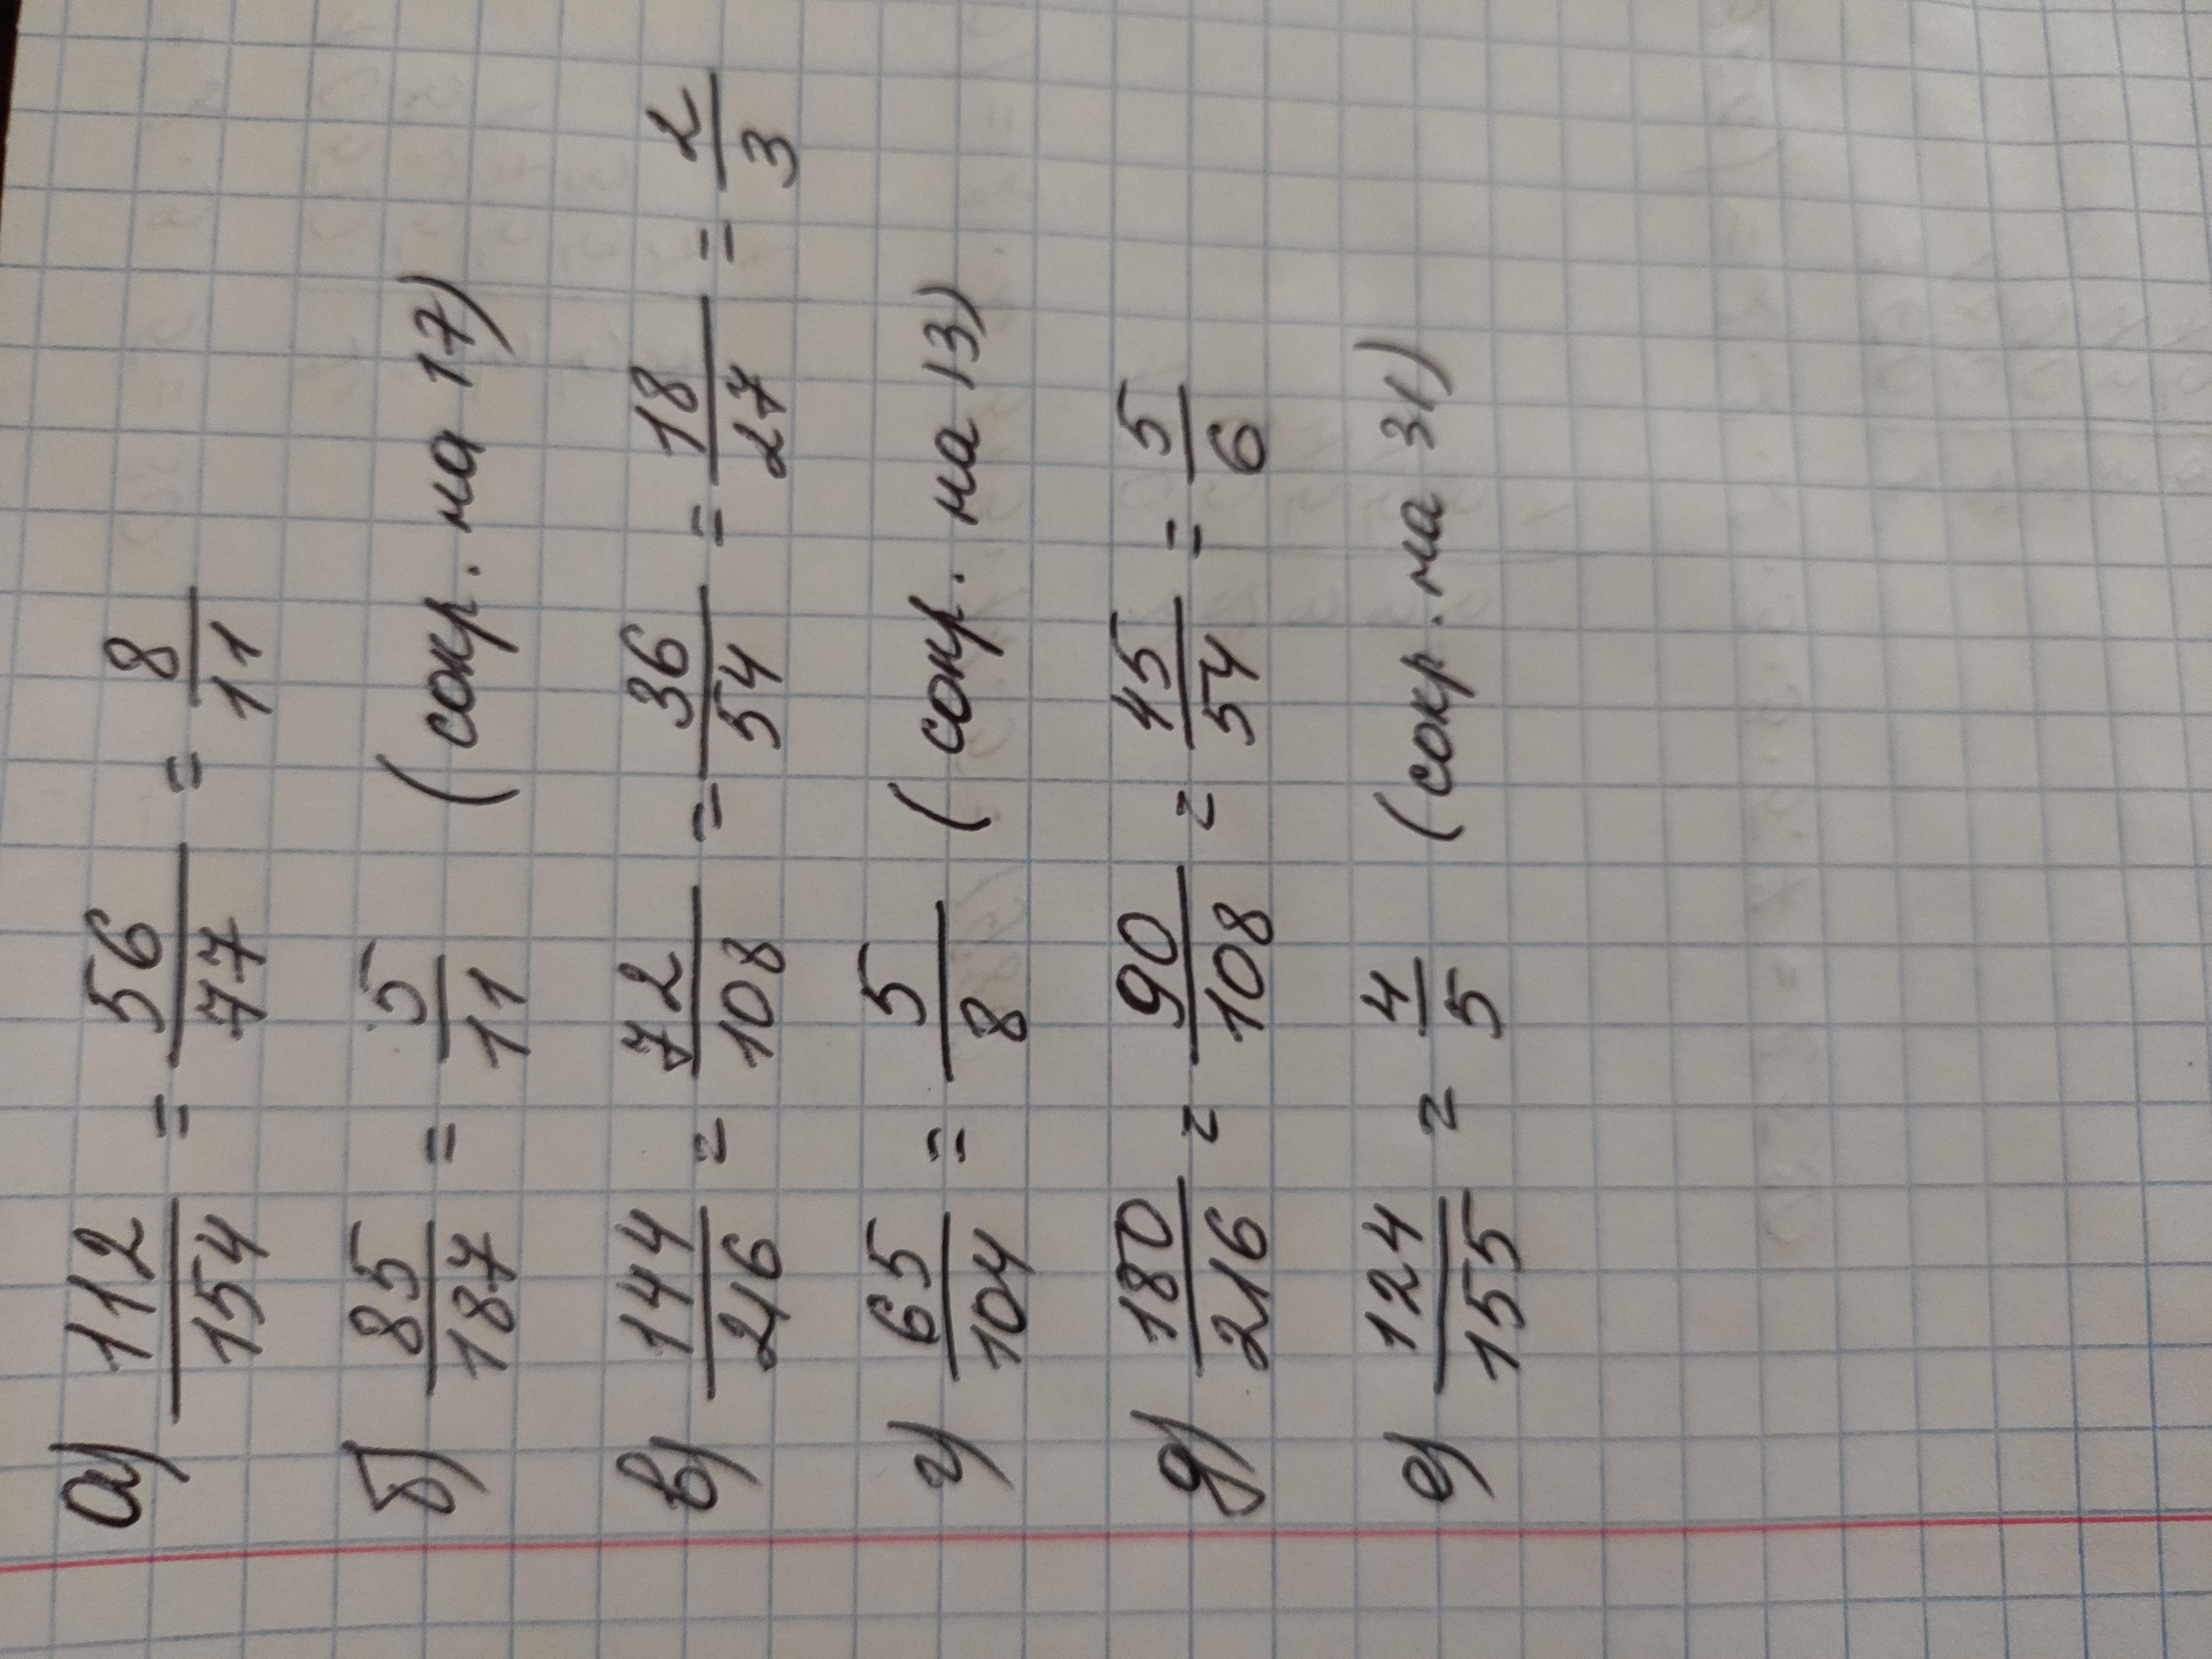 а) 112/154 = 56/77 = 8/11
б) 85/187 = 5/11 (сокр. на 17)
в) 144/216 = 72/108 = 36/54 = 18/27 = 2/3
г) 65/104 = 5/8 (сокр. на 13)
д) 180/216 = 90/108 = 45/54 = 5/6
е) 124/155 = 4/5 (сокр. на 31)